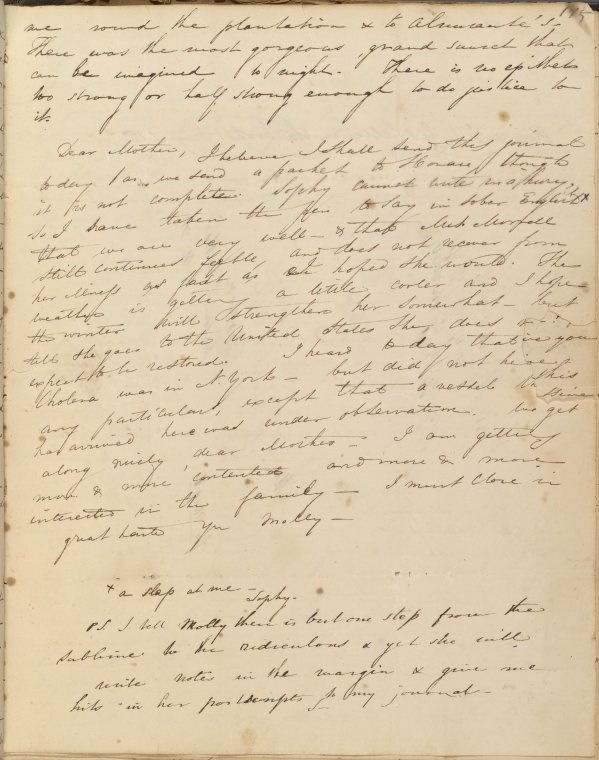 me round the plantation & to Almirante!!
There was the most gorgeous, grand sunset that
can be imagined to night. There is no epithet
too strong or half strong enough to do justice to
it.
Dear Mother, I believe I shall send this journal
today as we send a packet to Horace though
it is not complete. Sophy cannot write in a hurry,
so I have taken the pen to say in sober English x
that we are very well - & that Mrs Morrell
still continues feeble and does not recover from
her illness as fast as I hoped she would. The
weather is getting a little cooler and I hope
the winter will strengthen her somewhat - but
till she goes to the United States she does not
expect to be restored. I heard today that
Cholera was in N. York - but did not hear
any particulars, except that a vessel
has arrived here was under observation. We get
along nicely dear Mother - I am getting
more & more contented and more & more
interested in the family - I must close in
great haste Yr Molly -
x a slap at me - Sophy.
PS. I tell Molly there is but one step from the
sublime to the ridiculous & yet she will
write notes in the margin & give me
hits in her postscripts to my journal -